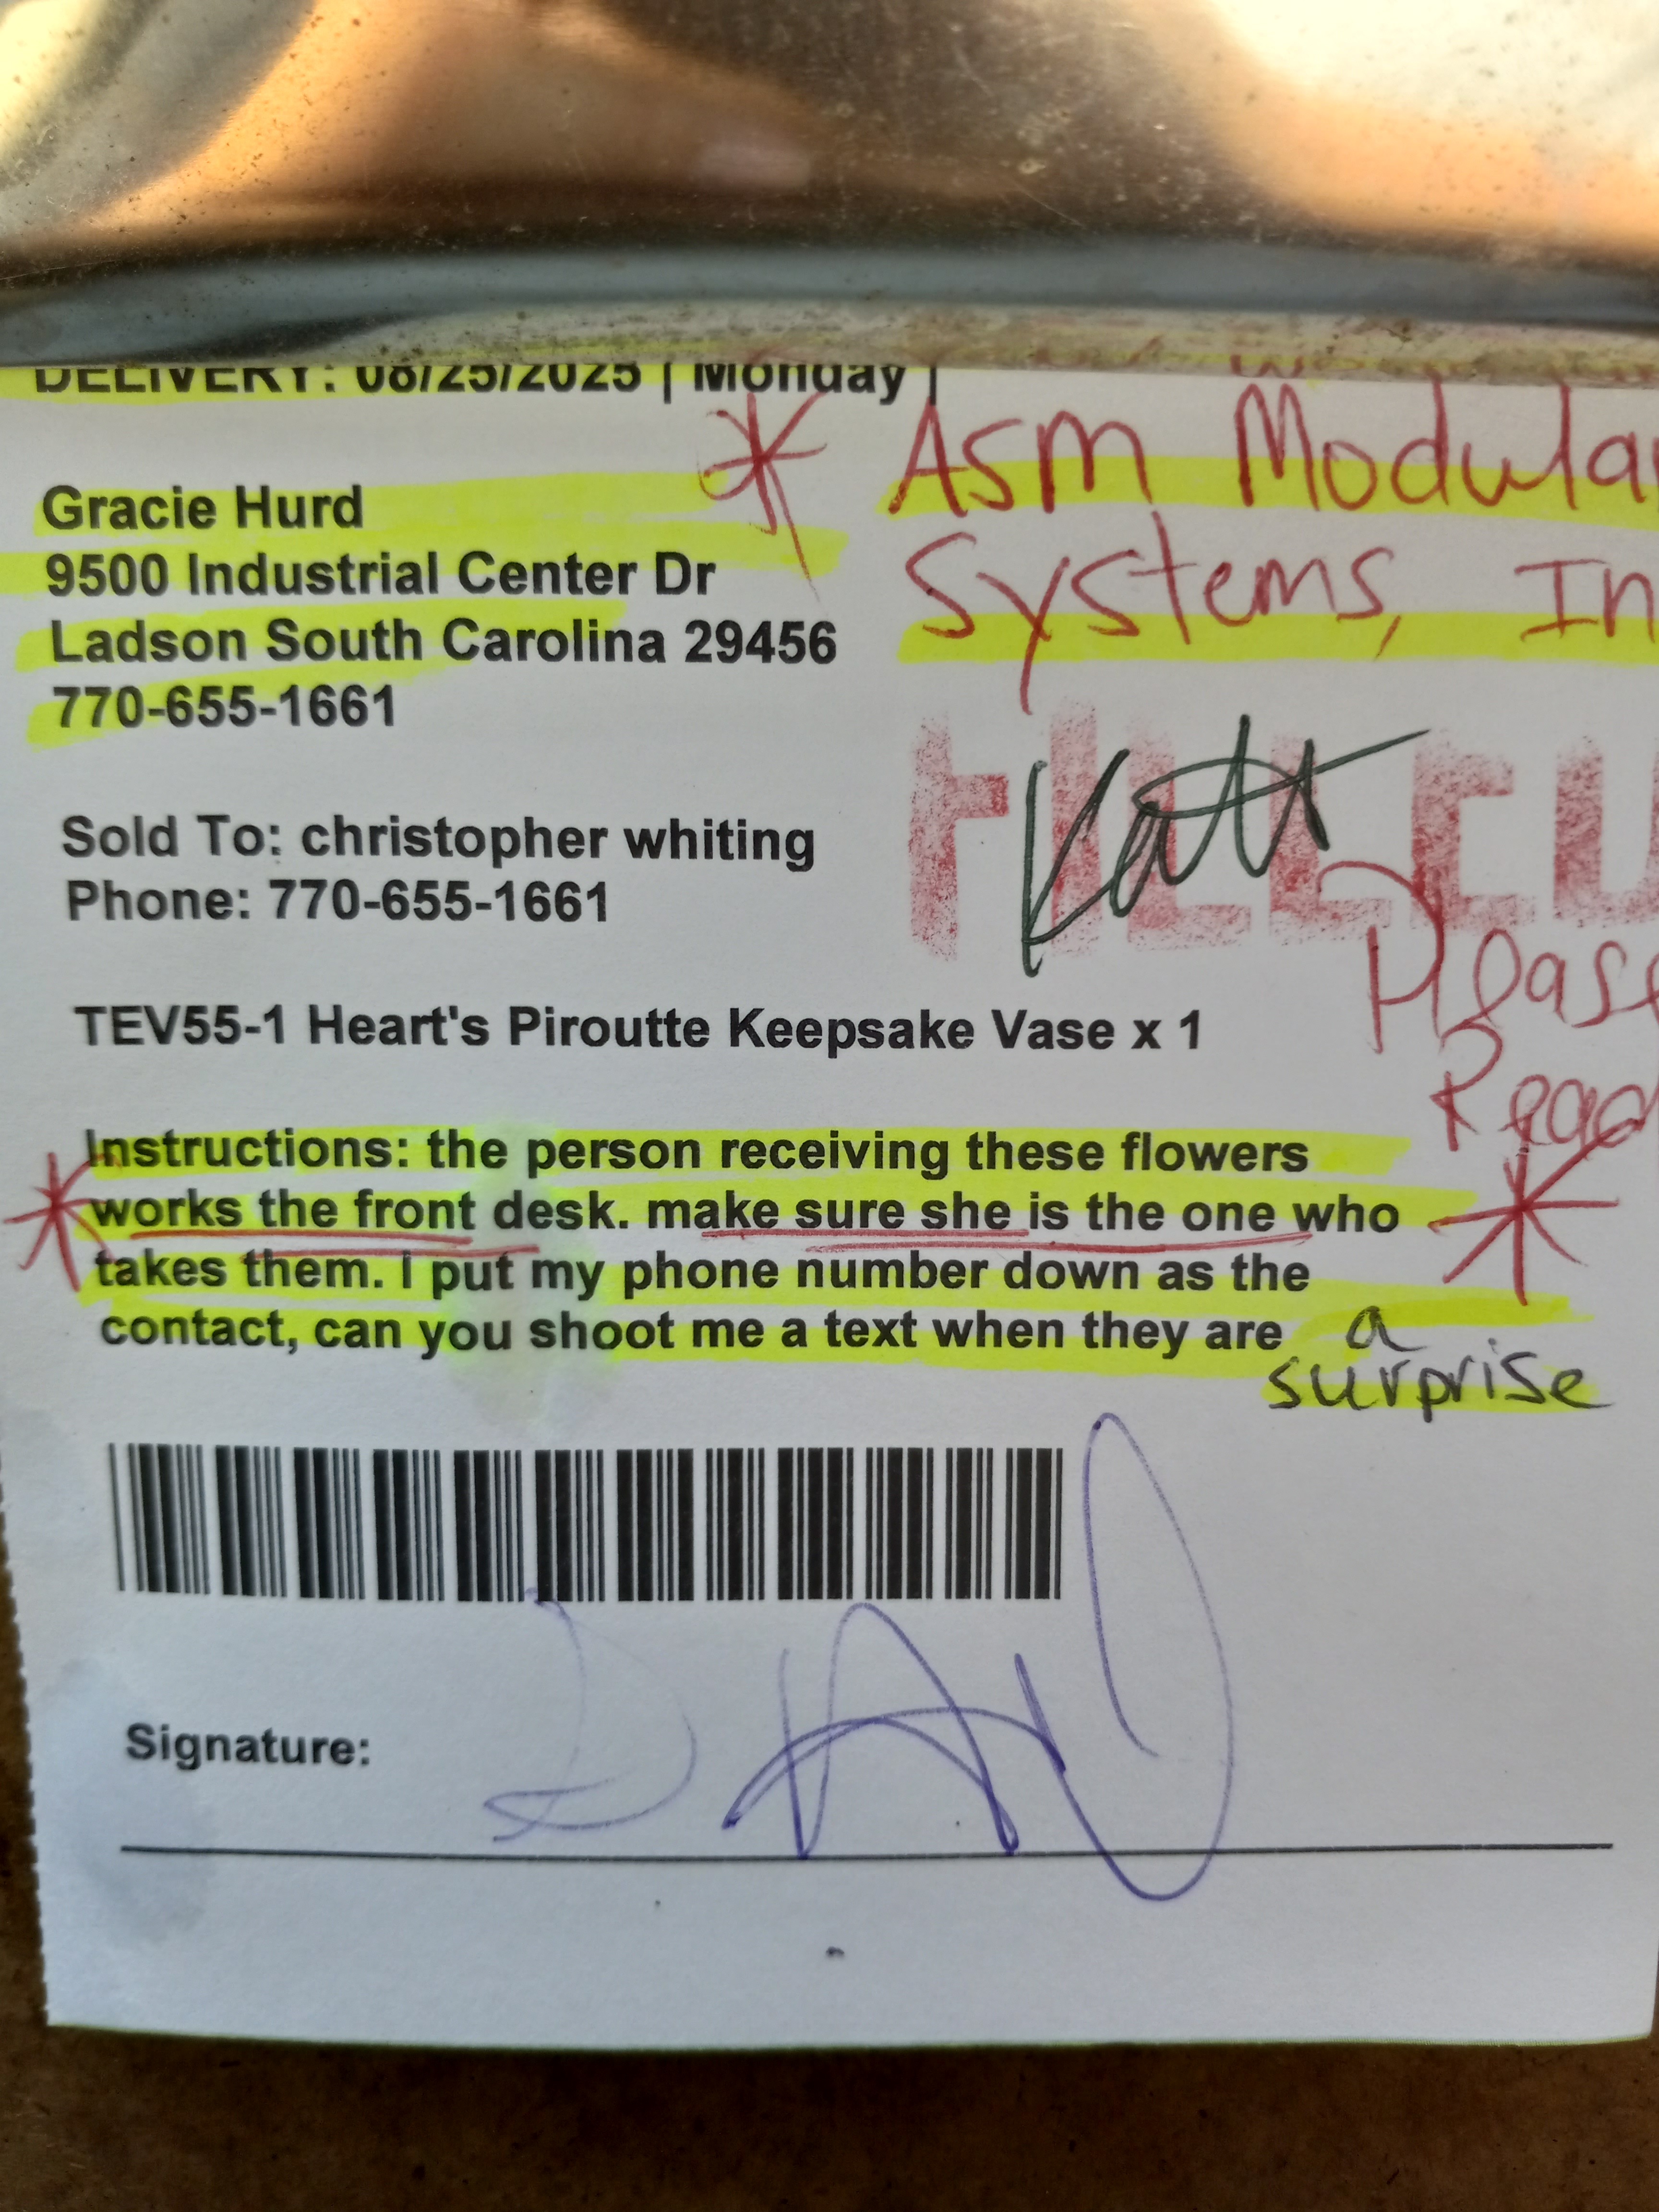 DELIVERY: 08/25/2025 | Monday |
* Asm Modular
Systems, In
Gracie Hurd
9500 Industrial Center Dr
Ladson South Carolina 29456
770-655-1661
Katt
Sold To: christopher whiting
Phone: 770-655-1661
Please
Read
TEV55-1 Heart's Piroutte Keepsake Vase x 1
Instructions: the person receiving these flowers
works the front desk. make sure she is the one who
takes them. I put my phone number down as the
contact, can you shoot me a text when they are
a
surprise
Signature: